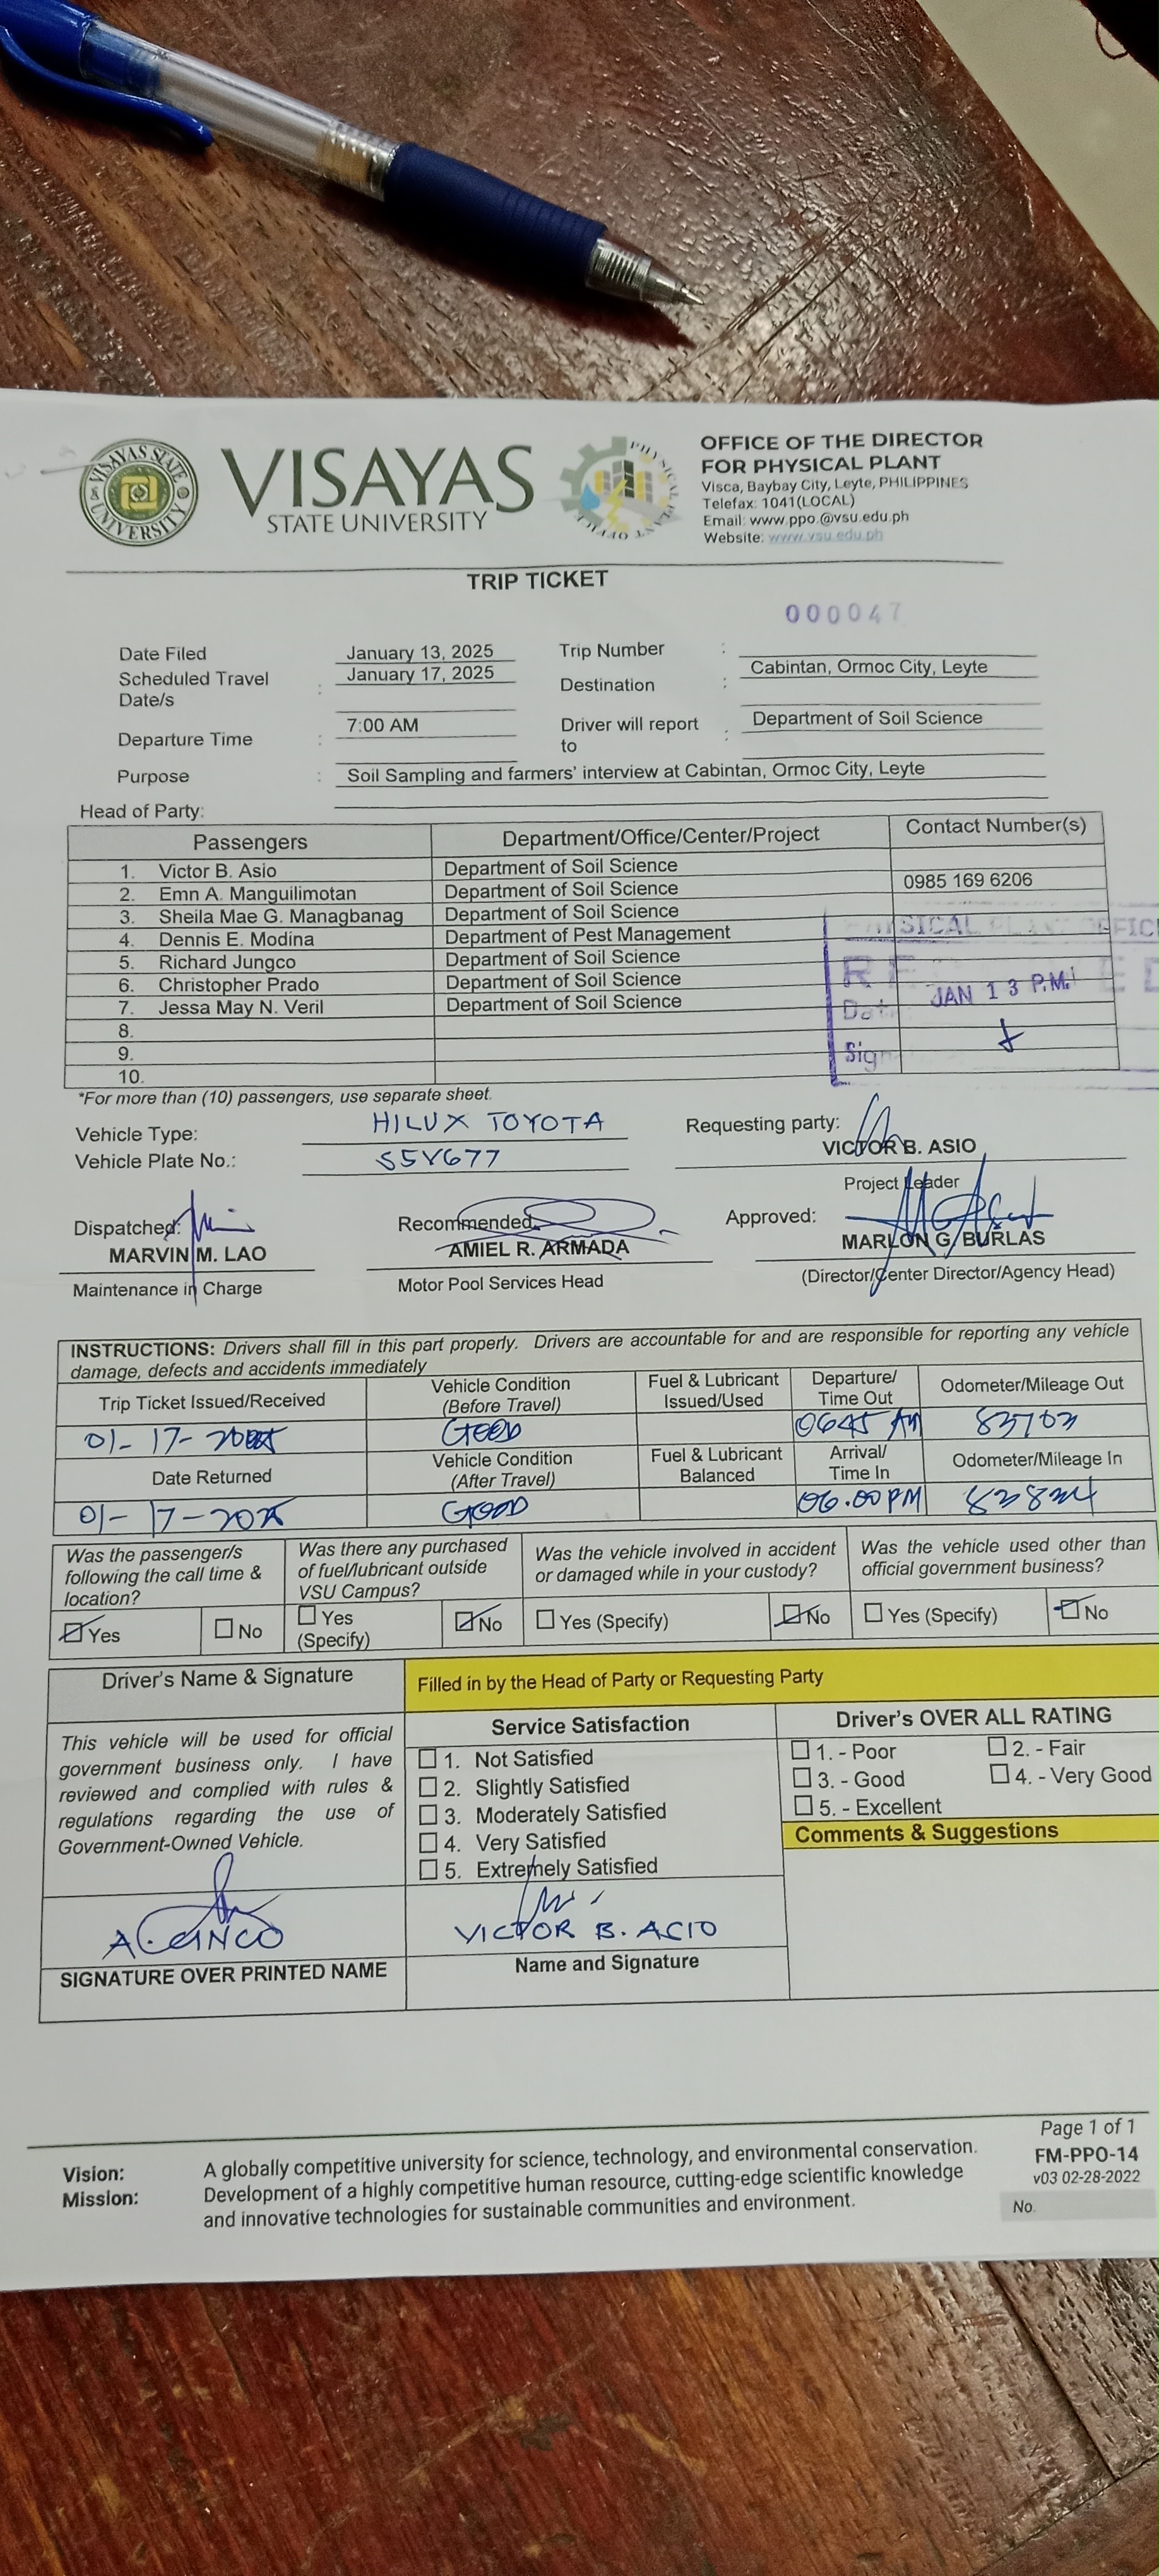 VISAYAS STATE UNIVERSITY
VISAYAS
STATE UNIVERSITY
PHYSICAL PLANT OFFICE
OFFICE OF THE DIRECTOR
FOR PHYSICAL PLANT
Visca, Baybay City, Leyte, PHILIPPINES
Telefax: 1041(LOCAL)
Email: www.ppo.@vsu.edu.ph
Website: www.vsu.edu.ph
TRIP TICKET
000047
Date Filed January 13, 2025 Trip Number :
Scheduled Travel Date/s : January 17, 2025 Destination : Cabintan, Ormoc City, Leyte
Departure Time : 7:00 AM Driver will report to : Department of Soil Science
Purpose : Soil Sampling and farmers' interview at Cabintan, Ormoc City, Leyte
Head of Party:
Passengers Department/Office/Center/Project Contact Number(s)
1. Victor B. Asio Department of Soil Science
2. Emn A. Manguilimotan Department of Soil Science 0985 169 6206
3. Sheila Mae G. Managbanag Department of Soil Science
4. Dennis E. Modina Department of Pest Management
5. Richard Jungco Department of Soil Science
6. Christopher Prado Department of Soil Science
7. Jessa May N. Veril Department of Soil Science
8.
9.
10.
JAN 13 P.M.
*For more than (10) passengers, use separate sheet.
Vehicle Type: HILUX TOYOTA
Vehicle Plate No.: S5V677
Requesting party:
VICTOR B. ASIO
Project Leader
Dispatched: Recommended Approved:
MARVIN M. LAO AMIEL R. ARMADA MARLON G. BURLAS
Maintenance in Charge Motor Pool Services Head (Director/Center Director/Agency Head)
INSTRUCTIONS: Drivers shall fill in this part properly. Drivers are accountable for and are responsible for reporting any vehicle
damage, defects and accidents immediately
Trip Ticket Issued/Received Vehicle Condition (Before Travel) Fuel & Lubricant Issued/Used Departure/ Time Out Odometer/Mileage Out
01-17-2025 GOOD 0645 AM
Date Returned Vehicle Condition (After Travel) Fuel & Lubricant Balanced Arrival/ Time In Odometer/Mileage In
01-17-2025 GOOD 06.00PM
Was the passenger/s following the call time & location? Was there any purchased of fuel/lubricant outside VSU Campus? Was the vehicle involved in accident or damaged while in your custody? Was the vehicle used other than official government business?
Yes No Yes (Specify) No Yes (Specify) No Yes (Specify) No
Driver's Name & Signature Filled in by the Head of Party or Requesting Party
This vehicle will be used for official
government business only. I have
reviewed and complied with rules &
regulations regarding the use of
Government-Owned Vehicle.
Service Satisfaction
1. Not Satisfied
2. Slightly Satisfied
3. Moderately Satisfied
4. Very Satisfied
5. Extremely Satisfied
Driver's OVER ALL RATING
1. - Poor 2. - Fair
3. - Good 4. - Very Good
5. - Excellent
Comments & Suggestions
VICTOR B. ACIO
SIGNATURE OVER PRINTED NAME Name and Signature
Page 1 of 1
FM-PPO-14
v03 02-28-2022
No.
Vision: A globally competitive university for science, technology, and environmental conservation.
Mission: Development of a highly competitive human resource, cutting-edge scientific knowledge
and innovative technologies for sustainable communities and environment.